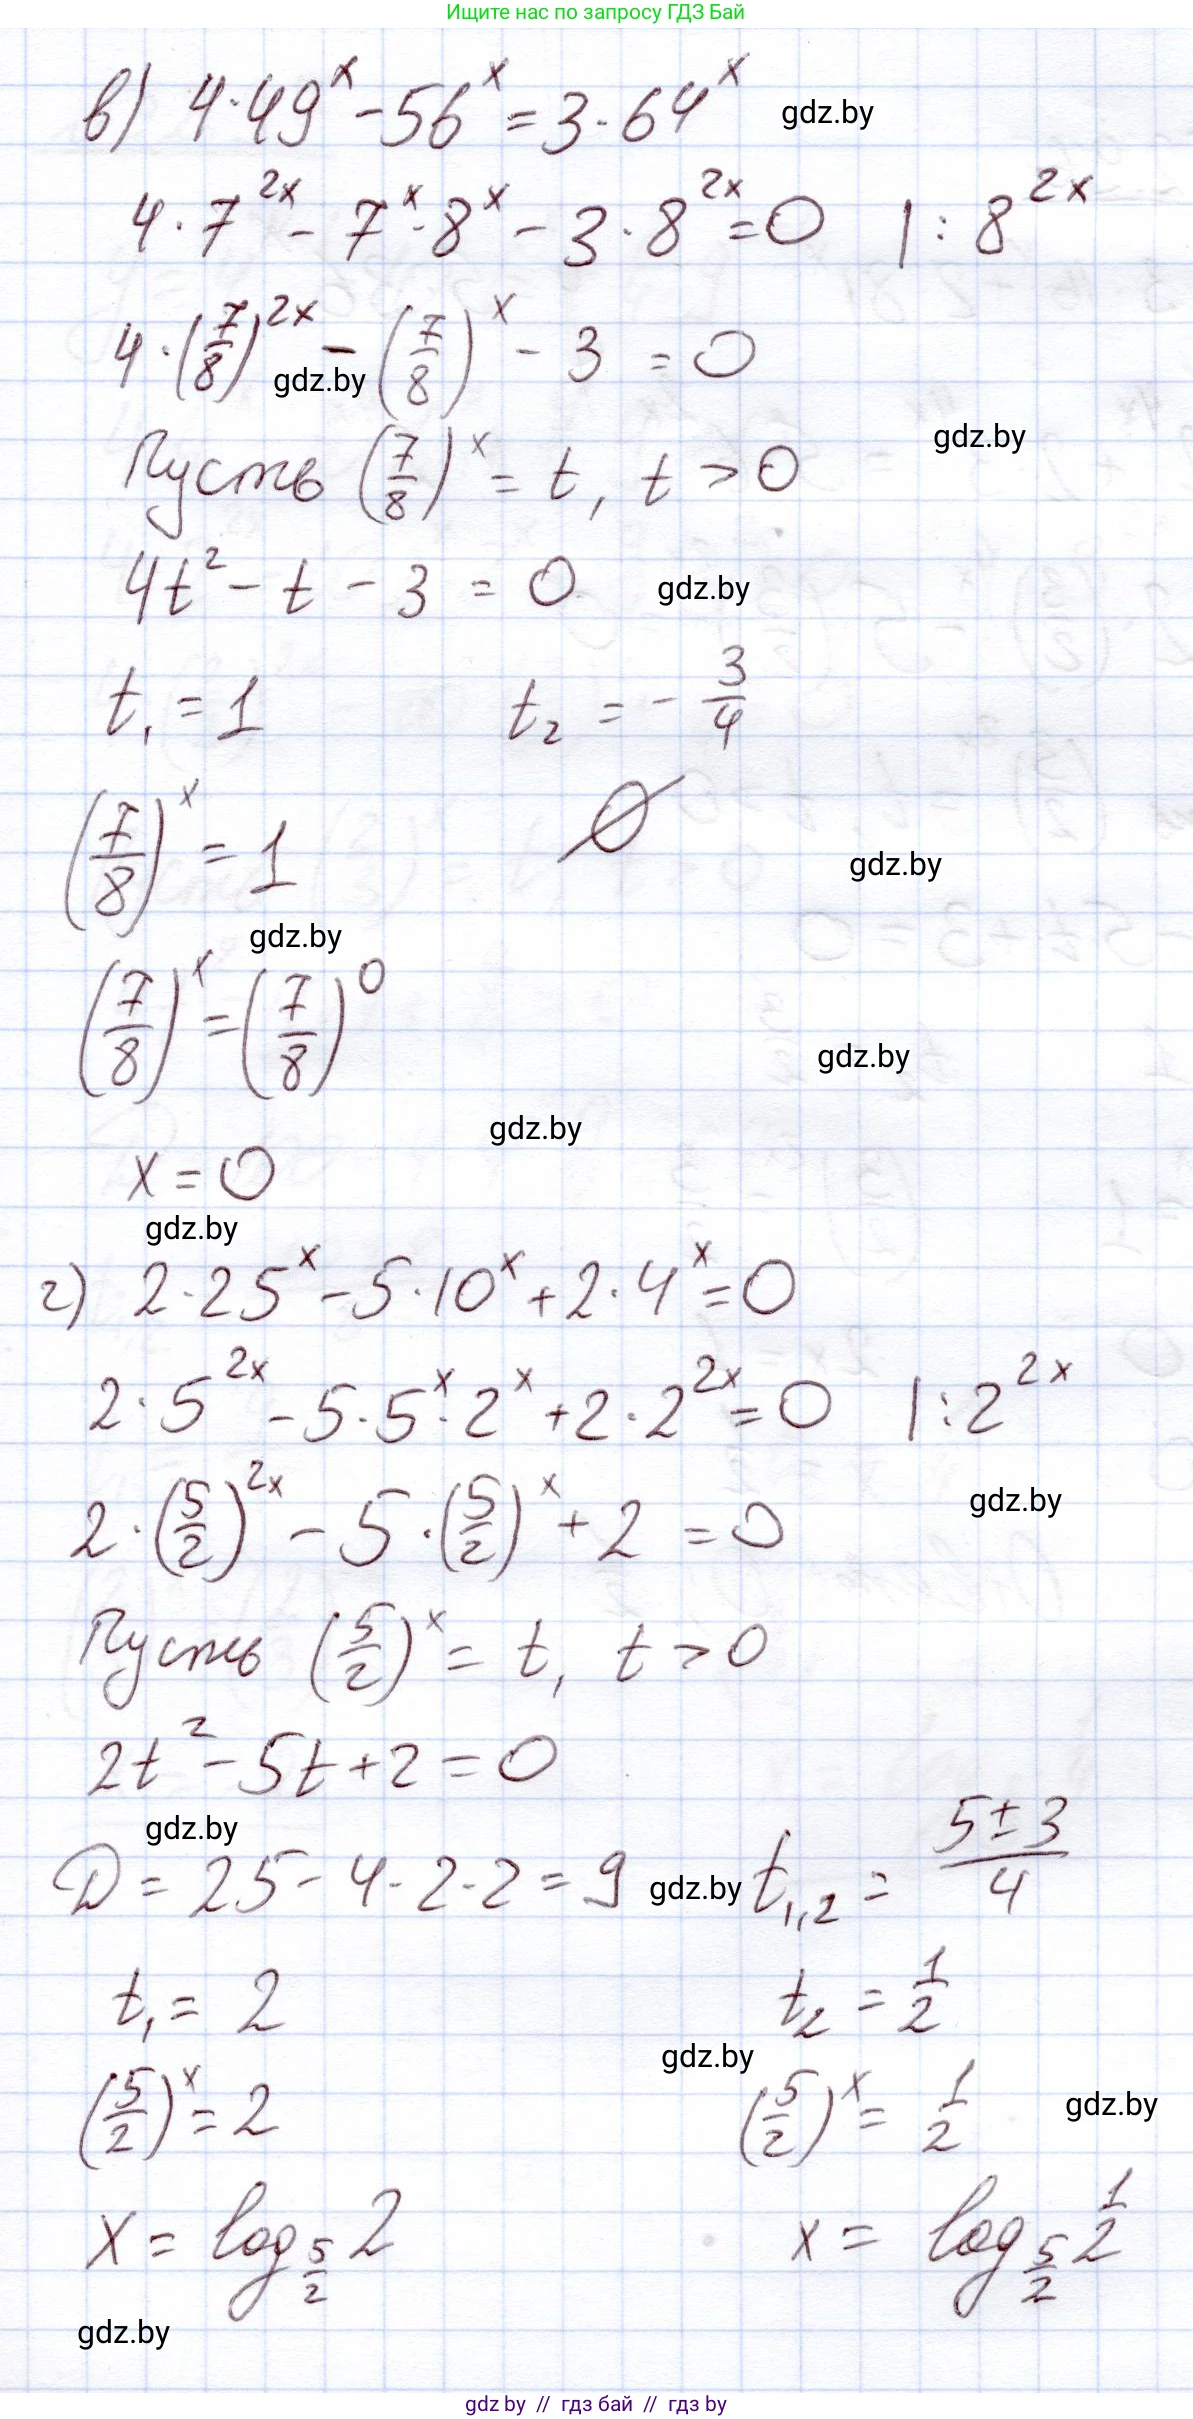 Ищите нас по запросу ГДЗ Бай
в) 4·49^x - 56^x = 3·64^x gdz.by
4·7^{2x} - 7^x·8^x - 3·8^{2x} = 0 |:8^{2x}
4·(7/8)^{2x} - (7/8)^x - 3 = 0
gdz.by
gdz.by
Пусть (7/8)^x = t, t > 0
4t² - t - 3 = 0 gdz.by
t₁ = 1 t₂ = -3/4
(7/8)^x = 1 ∅
gdz.by
gdz.by
(7/8)^x = (7/8)^0
gdz.by
gdz.by
x = 0
gdz.by
г) 2·25^x - 5·10^x + 2·4^x = 0
2·5^{2x} - 5·5^x·2^x + 2·2^{2x} = 0 |:2^{2x}
2·(5/2)^{2x} - 5·(5/2)^x + 2 = 0 gdz.by
Пусть (5/2)^x = t, t > 0
2t² - 5t + 2 = 0
gdz.by
D = 25 - 4·2·2 = 9 gdz.by t₁,₂ = (5±3)/4
t₁ = 2 t₂ = 1/2
gdz.by
(5/2)^x = 2 (5/2)^x = 1/2 gdz.by
x = log_{5/2} 2 x = log_{5/2} 1/2
gdz.by
gdz by // гдз бай // гдз by